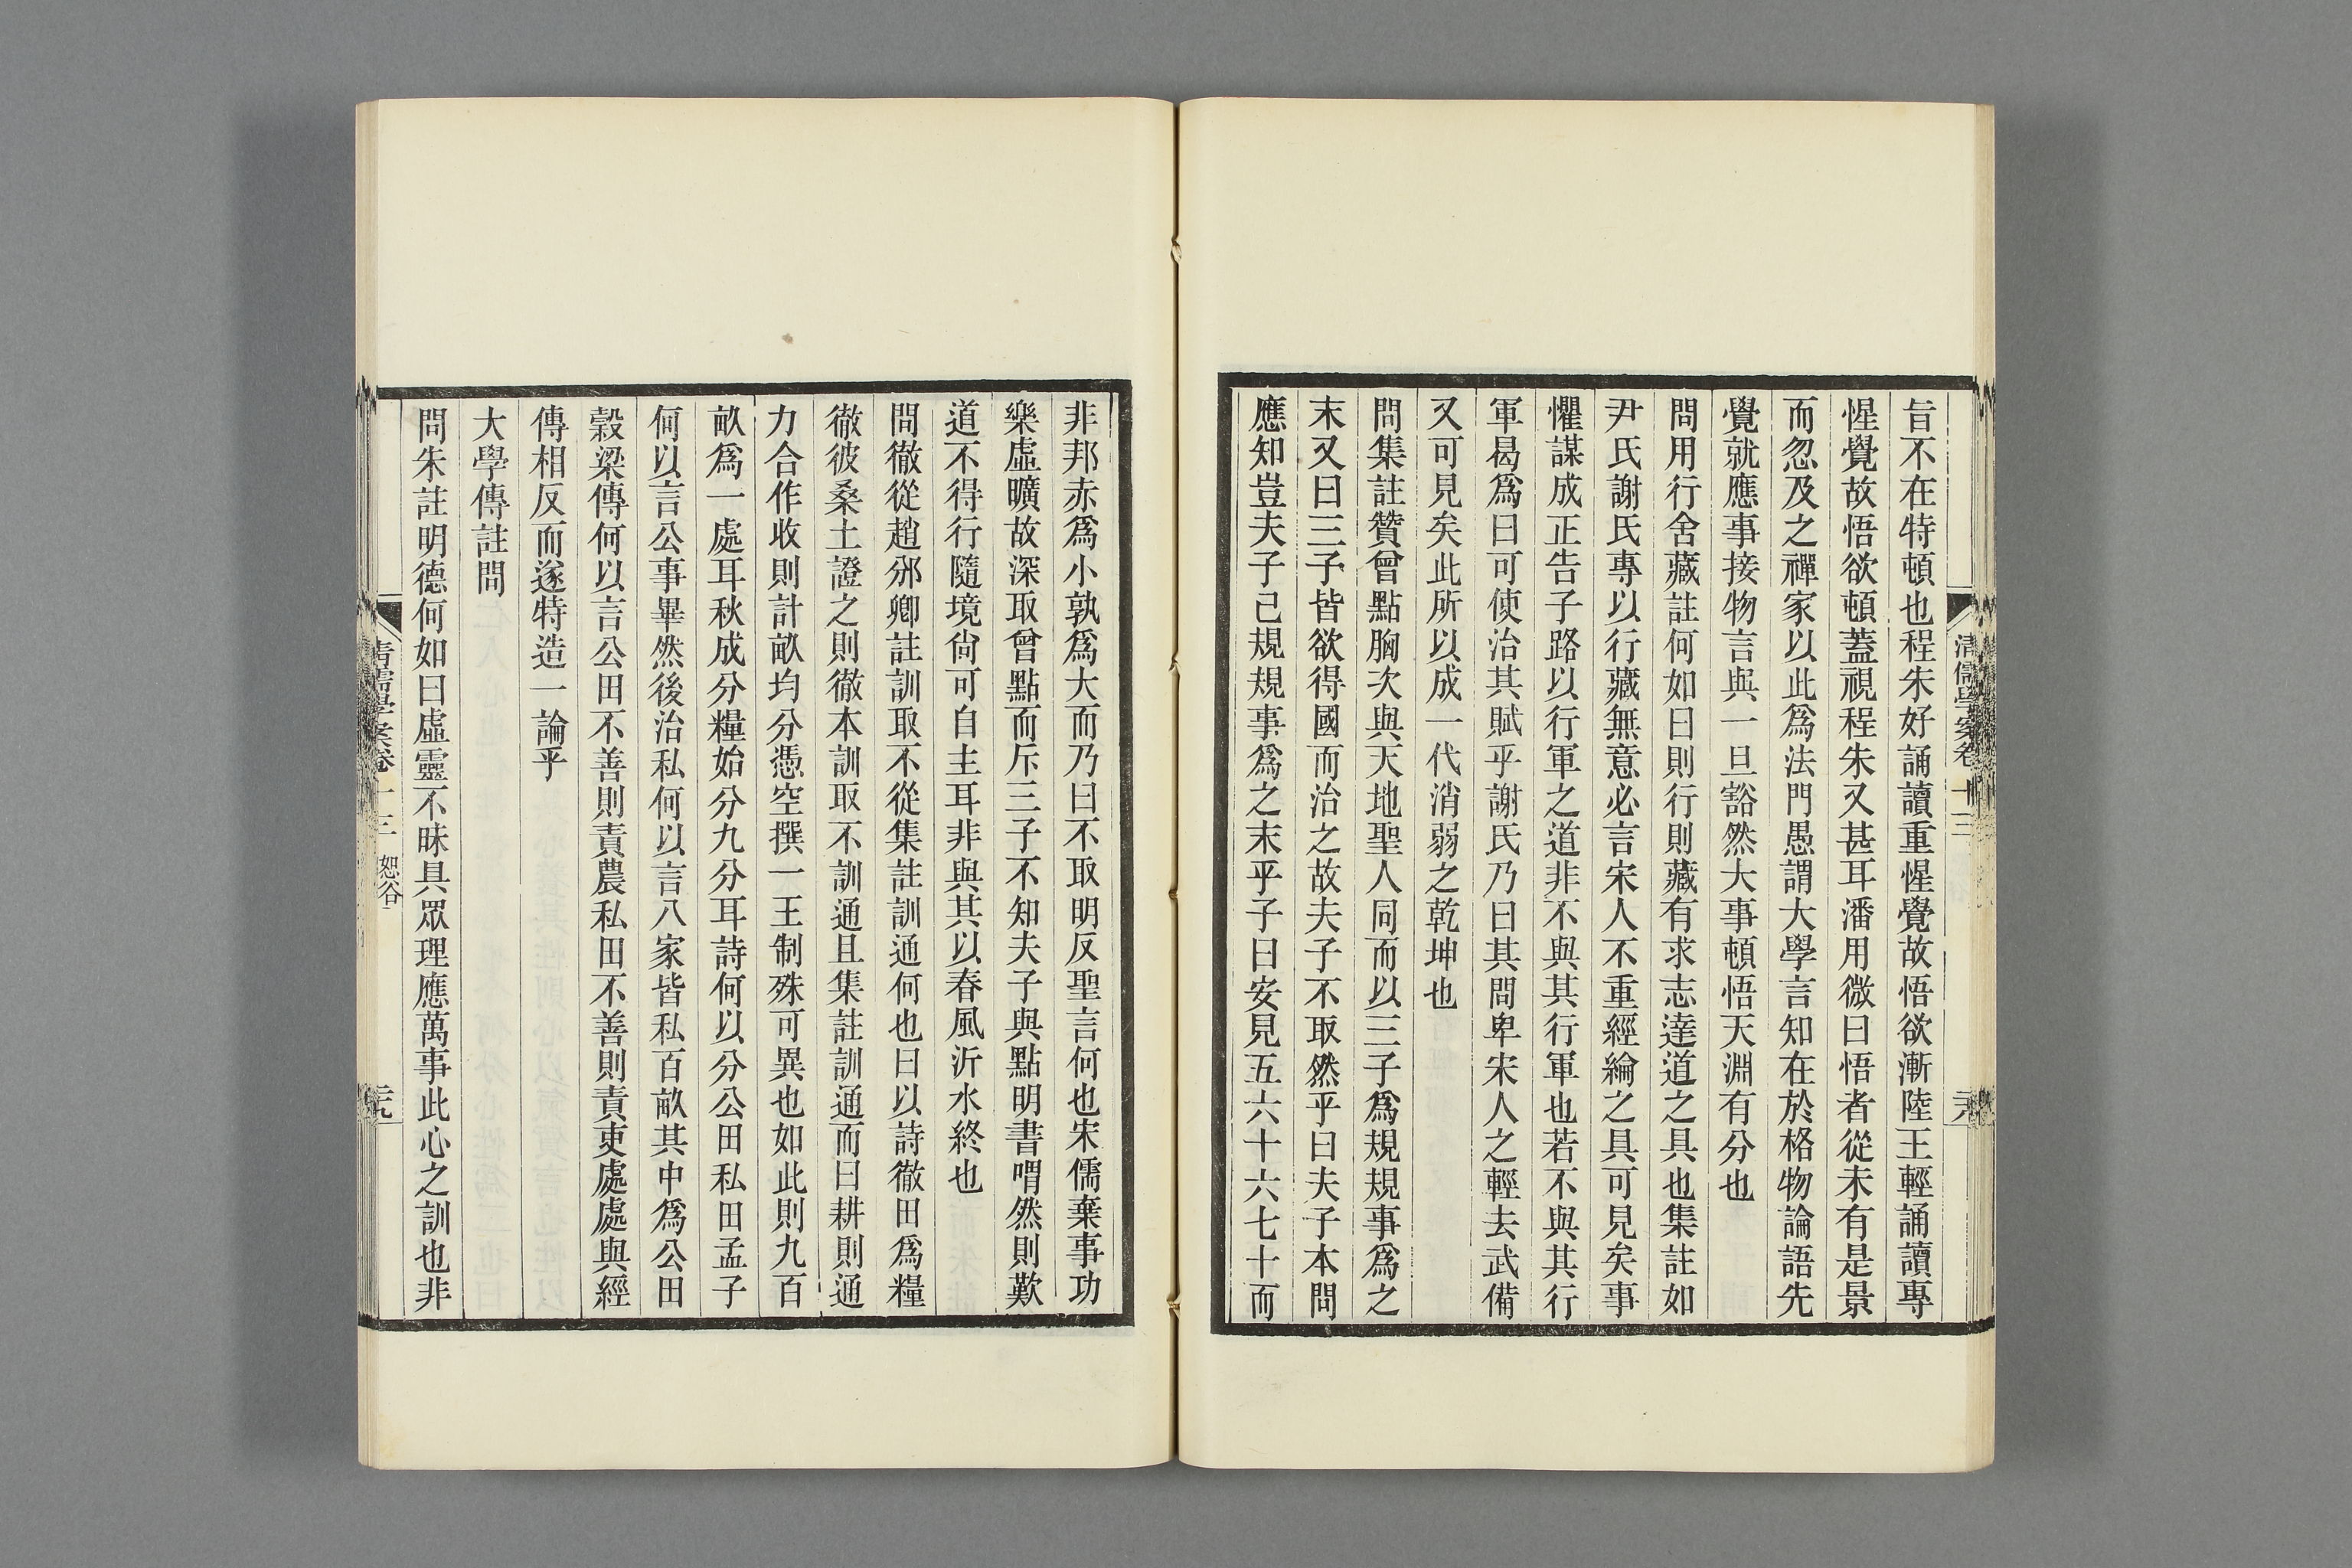 清儒學案卷十三
二十八
旨不在特頓也程朱好誦讀重惺覺故悟欲漸陸王輕誦讀專
惺覺故悟欲頓蓋視程朱又甚耳潘用微曰悟者從未有是景
而忽及之禪家以此爲法門愚謂大學言知在於格物論語先
覺就應事接物言與一旦豁然大事頓悟天淵有分也
問用行舍藏註何如曰則行則藏有求志達道之具也集註如
尹氏謝氏專以行藏無意必言宋人不重經綸之具可見矣事
懼謀成正告子路以行軍之道非不與其行軍也若不與其行
軍曷爲曰可使治其賦乎謝氏乃曰其問卑宋人之輕去武備
又可見矣此所以成一代消弱之乾坤也
問集註贊曾點胸次與天地聖人同而以三子爲規規事爲之
末又曰三子皆欲得國而治之故夫子不取然乎曰夫子本問
應知豈夫子己規規事爲之末乎子曰安見五六十六七十而
非邦赤爲小孰爲大而乃曰不取明反聖言何也宋儒棄事功
樂虛曠故深取曾點而斥三子不知夫子與點明書喟然則歎
道不得行隨境尙可自主耳非與其以春風沂水終也
問徹從趙邠卿註訓取不從集註訓通何也曰以詩徹田爲糧
徹彼桑土證之則徹本訓取不訓通且集註訓通而曰耕則通
力合作收則計畝均分憑空撰一王制殊可異也如此則九百
畝爲一處耳秋成分糧始分九分耳詩何以分公田私田孟子
何以言公事畢然後治私何以言八家皆私百畝其中爲公田
穀梁傳何以言公田不善則責農私田不善則責吏處處與經
傳相反而遂特造一論乎
大學傳註問
問朱註明德何如曰虛靈不昧具眾理應萬事此心之訓也非
清儒學案卷十三 恕谷
二十九